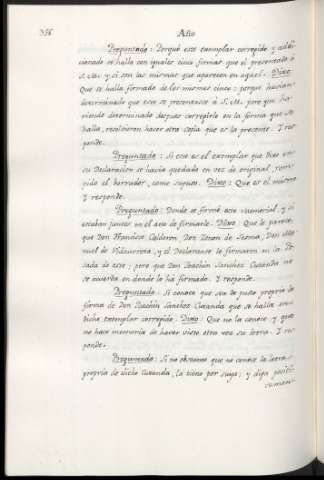 356
Año
Preguntado: Porqué este exemplar corregido y adici
cionado se halla con iguales cinco firmas que el presentado á
S. M. y si son las mismas que aparecen en aquel. Dixo:
Que se halla firmado de los mismos cinco: porque havian
determinado que este se presentase á S. M. pero que ha-
viendo determinado despues corregirlo en la forma que se
halla, resolvieron hacer otra copia que es la presente. Y res-
ponde.
Preguntado: Si ese es el exemplar que dixo en
su Declaracion se havia quedado en vez de original, rom-
pido el borrador, como supone. Dixo: Que es el mismo
Y responde.
Preguntado: Donde se firmó este memorial, y si
estaban juntos en el acto de firmarle. Dixo: Que le parece
que Don Francisco Calderon, Don Zenon de Sesma, Don Ma-
nuel de Vidaurreta, y el Declarante le firmaron en la Po-
sada de este; pero que Don Joachin Sanchez Cutanda no
se acuerda en donde lo ha firmado. Y responde.
Preguntado: Si conoce que sea de puño propio la
firma de Don Joachin Sanchez Cutanda que se halla en
dicho exemplar corregido. Dixo: Que no la conoce y que
no hace memoria de haver visto otra vez su letra. Y res-
ponde.
Preguntado: Si no obstante que no conoce la letra
propria de dicho Cutanda, la tiene por suya; y diga positi
vamen-